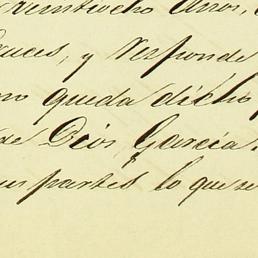 veintiocho años,
cruces, y responde
mo queda dicho
de Dios Garcia.
us partes lo que se